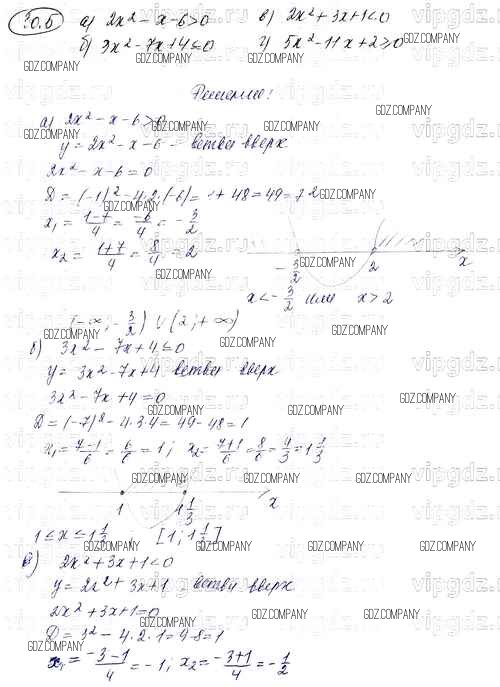 30.5) а) 2x² - x - 6 > 0 в) 2x² + 3x + 1 < 0
б) 3x² - 7x + 4 ≤ 0 г) 5x² - 11x + 2 ≥ 0
GDZ.COMPANY GDZ.COMPANY GDZ.COMPANY GDZ.COMPANY
Решение:
а) 2x² - x - 6 > 0
y = 2x² - x - 6 - ветви вверх
2x² - x - 6 = 0
D = (-1)² - 4·2·(-6) = 1 + 48 = 49 = 7²
x₁ = (1-7)/4 = -6/4 = -3/2
x₂ = (1+7)/4 = 8/4 = 2
-3/2 2 x
x < -3/2 или x > 2
(-∞; -3/2) ∪ (2; +∞)
б) 3x² - 7x + 4 ≤ 0
y = 3x² - 7x + 4 ветви вверх
3x² - 7x + 4 = 0
D = (-7)² - 4·3·4 = 49 - 48 = 1
x₁ = (7-1)/6 = 6/6 = 1; x₂ = (7+1)/6 = 8/6 = 4/3 = 1 1/3
1 1 1/3 x
1 ≤ x ≤ 1 1/3, [1; 1 1/3]
в) 2x² + 3x + 1 < 0
y = 2x² + 3x + 1 - ветви вверх
2x² + 3x + 1 = 0
D = 3² - 4·2·1 = 9 - 8 = 1
x₁ = (-3-1)/4 = -1; x₂ = (-3+1)/4 = -1/2
vipgdz.ru